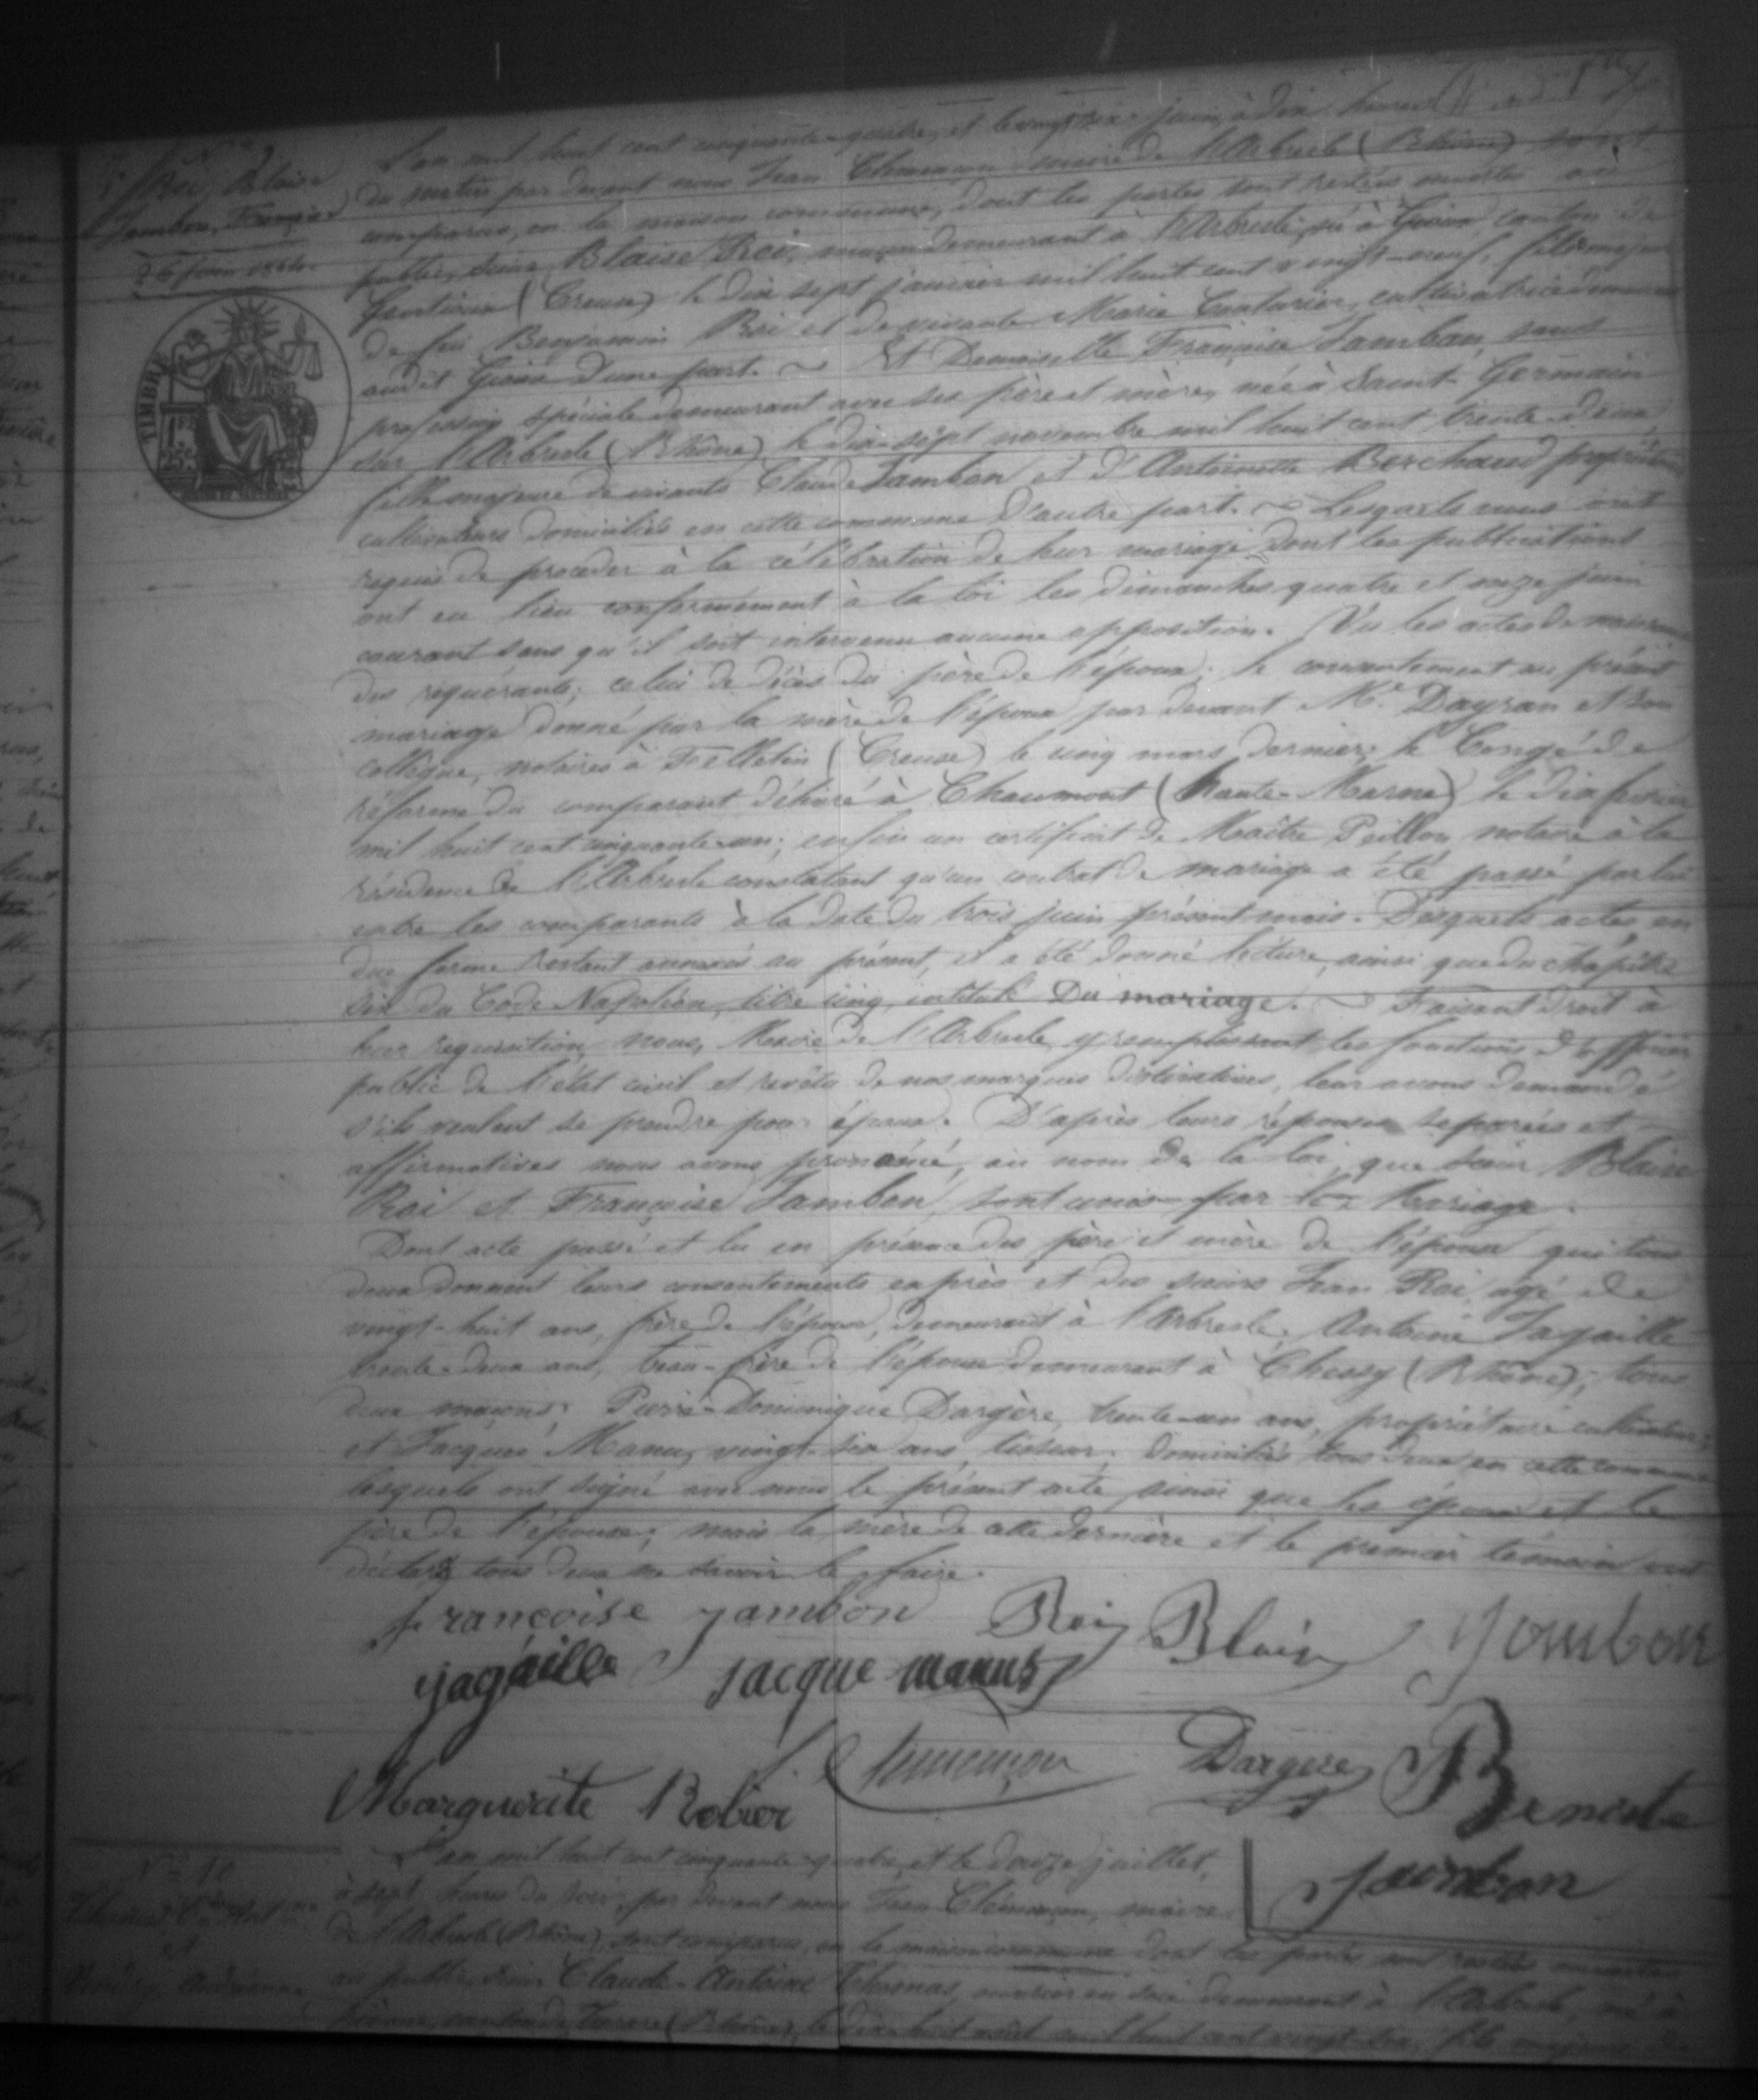 Roi, Blaise
Jambon, Françoise
26 juin 1854.
TIMBRE
25c
L'an mil huit cent cinquante-quatre, et le vingt-six juin, à dix heures
du matin par devant nous Jean Clémençon maire de l'Arbresle (Rhône) sont
comparus, en la maison commune, dont les portes sont restées ouvertes au
public, sieur Blaise Roi, maçon demeurant à l'Arbresle, né à Gioux, canton de
Gentioux (Creuse) le dix sept janvier mil huit cent vingt-neuf, fils majeur
de feu Benjamin Roi et de vivante Marie Couturier, cultivatrice demeurant
audit Gioux d'une part. ~ Et Demoiselle Françoise Jambon, sans
profession spéciale demeurant avec ses père et mère, née à Saint-Germain
sur l'Arbresle (Rhône) le dix-sept novembre mil huit cent trente-deux,
fille majeure de vivants Claude Jambon et d'Antoinette Berchoud propriétaires
cultivateurs domiciliés en cette commune d'autre part. ~ Lesquels nous ont
requis de procéder à la célébration de leur mariage dont les publications
ont eu lieu conformément à la loi les dimanches quatre et onze juin
courant sans qu'il soit intervenu aucune opposition. Vu les actes de naissance
des requérants; celui de décès du père de l'époux; le consentement au présent
mariage donné par la mère de l'époux par devant Me. Dayran et son
collègue, notaires à Felletin (Creuse) le cinq mars dernier; le Congé de
réforme du comparant délivré à Chaumont (Haute-Marne) le dix février
mil huit cent cinquante-un; enfin un certificat de Maître Peillon notaire à la
résidence de l'Arbresle constatant qu'un contrat de mariage a été passé par lui
entre les comparants à la date du trois juin présent mois. Desquels actes en
due forme restant annexés au présent, il a été donné lecture, ainsi que du chapitre
six du Code Napoléon, titre cinq, intitulé Du mariage. ~ Faisant droit à
leur requisition, nous, Maire de l'Arbresle, y remplissant les fonctions d'officier
public de l'état civil et revêtu de nos marques distinctives, leur avons demandé
s'ils veulent se prendre pour époux. D'après leurs réponses séparées et
affirmatives nous avons prononcé, au nom de la loi, que sieur Blaise
Roi et Françoise Jambon, sont unis par le Mariage.
Dont acte passé et lu en présence des père et mère de l'épouse qui tous
deux donnent leurs consentements exprès et des sieurs Jean Roi, âgé de
vingt-huit ans, frère de l'époux, demeurant à l'Arbresle; Antoine Jagaille
trente-deux ans, beau-frère de l'époux demeurant à Chessy (Rhône); tous
deux maçons; Pierre-Dominique Dargère, trente-un ans, propriétaire cultivateur;
et Jacques Manus, vingt-six ans, tisseur, domiciliés tous deux en cette commune
lesquels ont signé avec nous le présent acte ainsi que les époux et le
père de l'épouse; mais la mère de cette dernière et le premier témoin ont
déclaré tous deux ne savoir le faire.
françoise jambon Roi Blaise Jambon
jagaille jacque manus
Clémençon Dargère Benoite
Marguerite Robier
Jambon
N° 10
L'an mil huit cent cinquante-quatre, et le douze juillet,
à sept heures du soir, par devant nous Jean Clémençon, maire
de l'Arbresle (Rhône), sont comparus, en la maison commune dont les portes sont restées ouvertes
au public, sieur Claude-Antoine demeurant à l'Arbresle, né à
canton de Tarare (Rhône), le dix-huit août mil huit cent vingt-six, fils majeur de